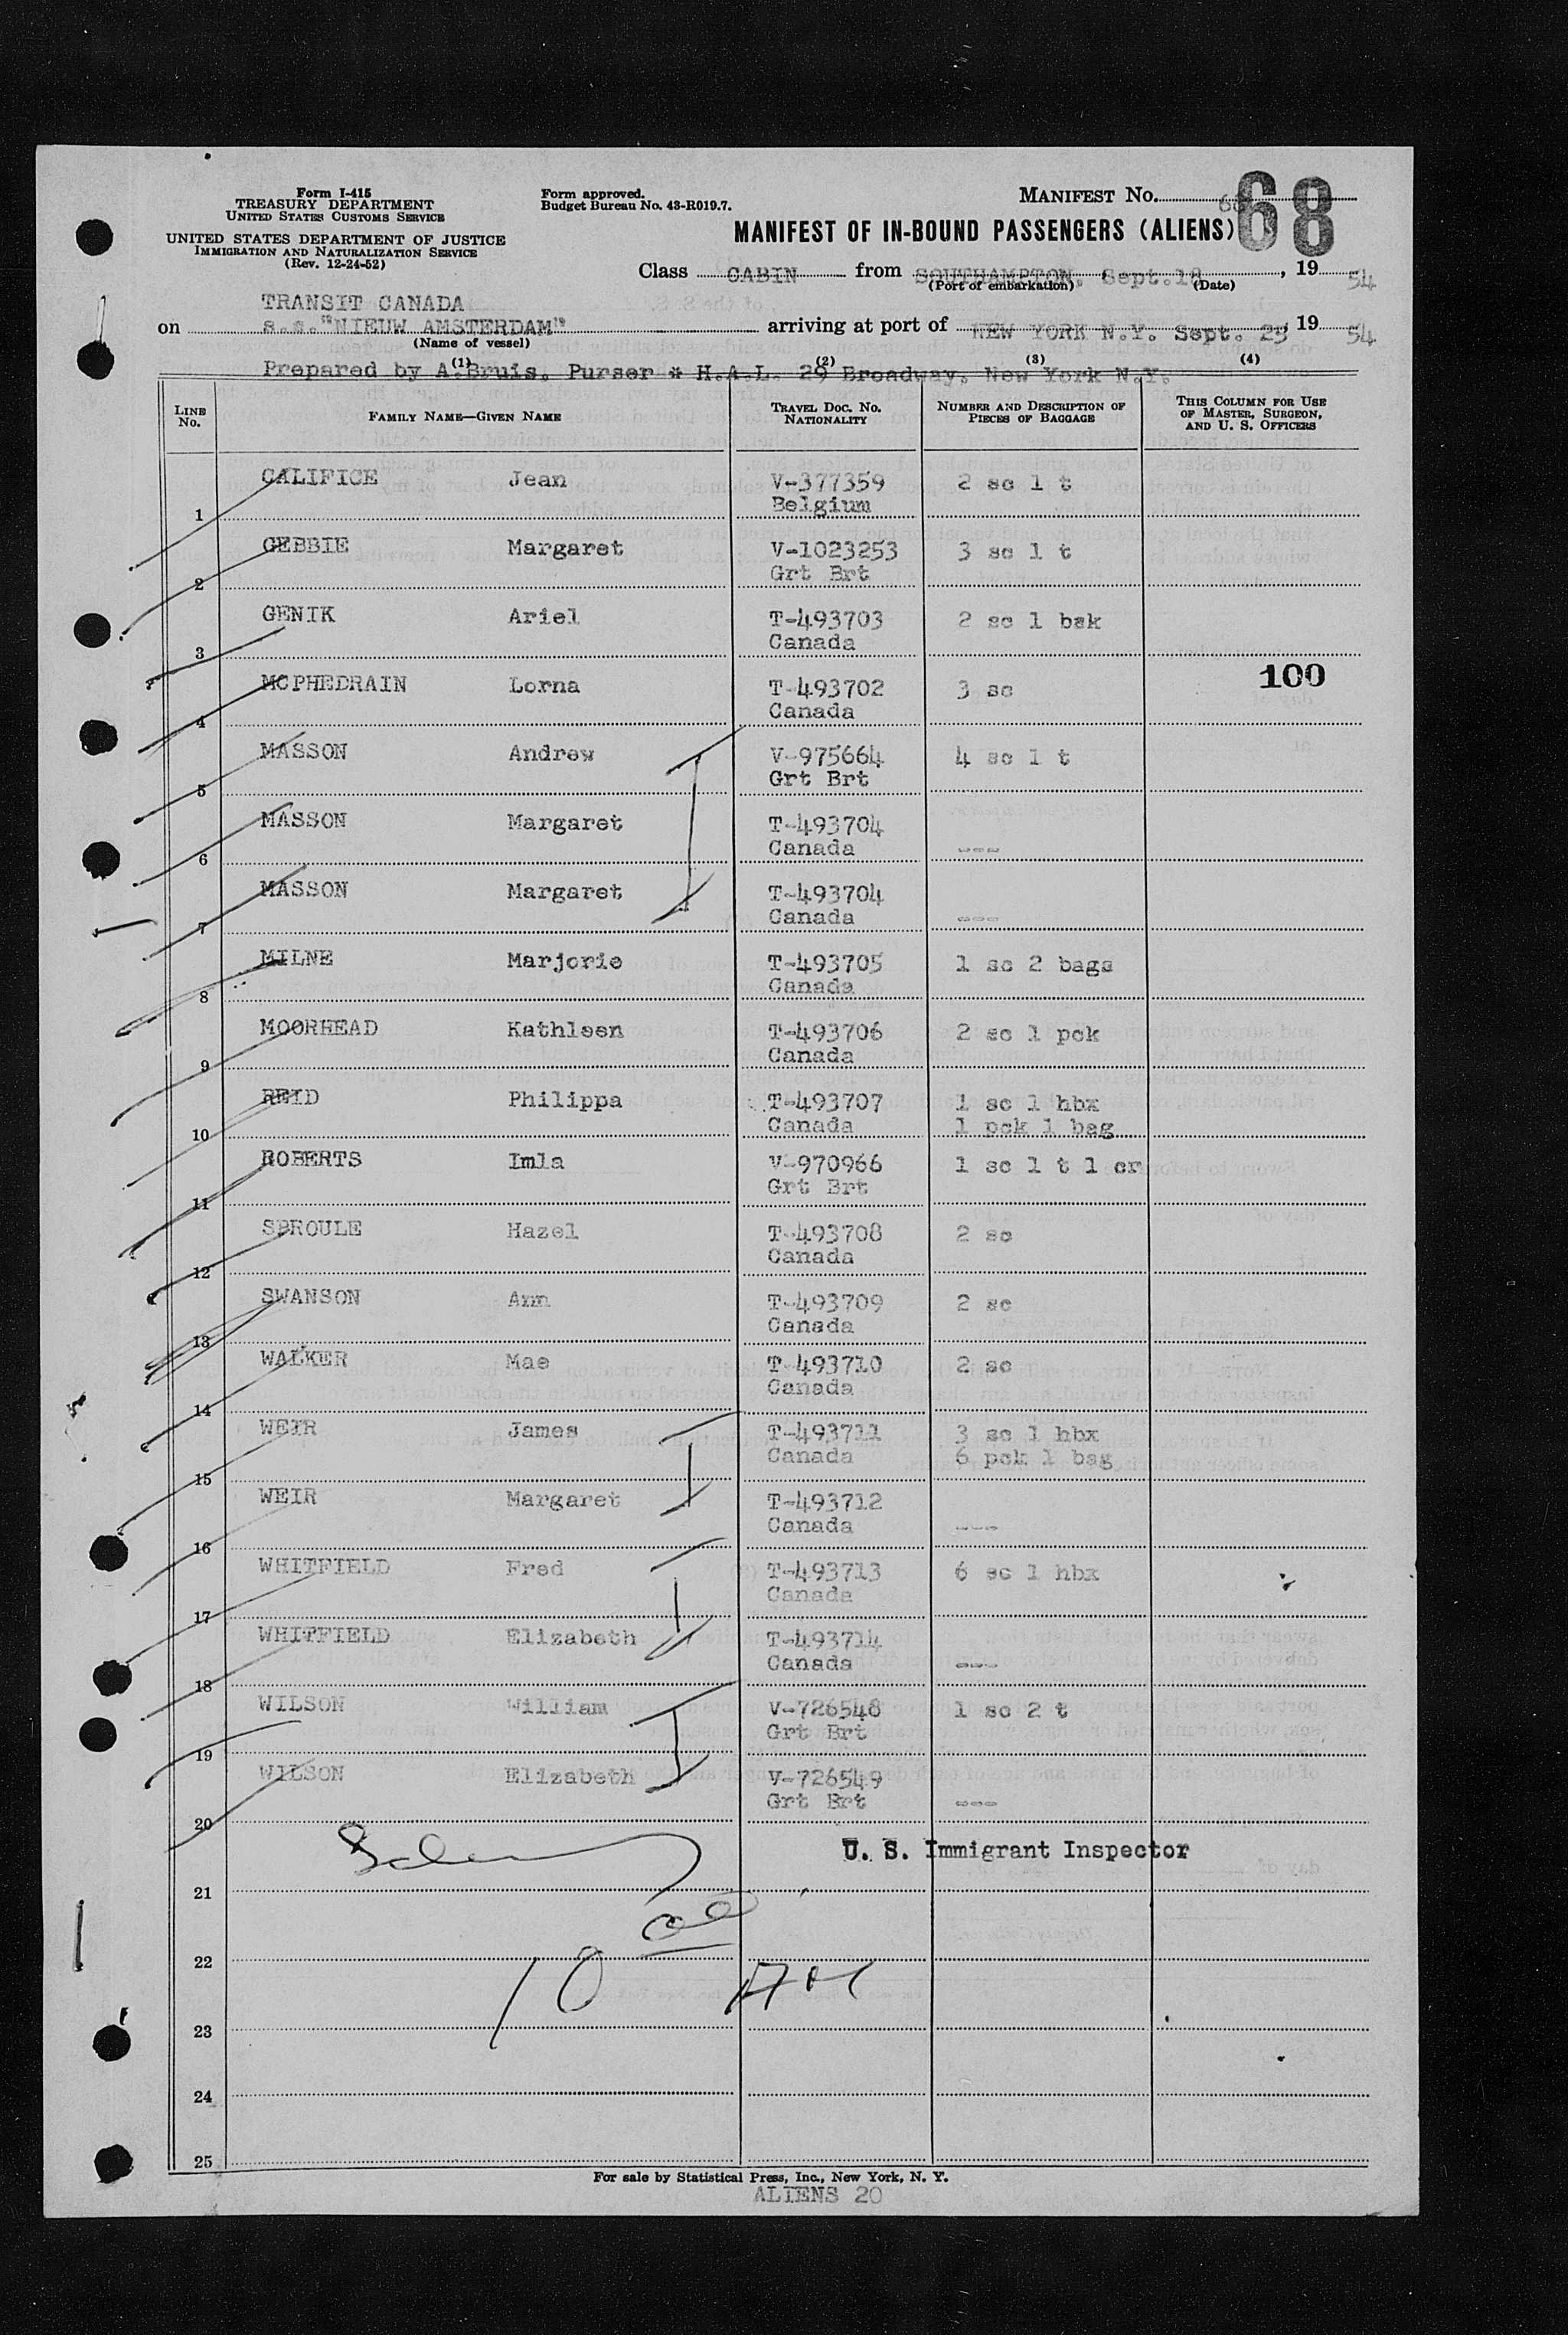 Form I-415
TREASURY DEPARTMENT
UNITED STATES CUSTOMS SERVICE
UNITED STATES DEPARTMENT OF JUSTICE
IMMIGRATION AND NATURALIZATION SERVICE
(Rev. 12-24-52)
Form approved.
Budget Bureau No. 43-R019.7.
MANIFEST No. 68
MANIFEST OF IN-BOUND PASSENGERS (ALIENS)
Class CABIN from SOUTHAMPTON, Sept.18, 1954
(Port of embarkation) (Date)
TRANSIT CANADA
on s.s."NIEUW AMSTERDAM" arriving at port of NEW YORK N.Y. Sept. 25 1954
(Name of vessel)
(1) (2) (3) (4)
Prepared by A.Bruis. Purser * H.A.L. 29 Broadway. New York N.Y.
LINE No. FAMILY NAME—GIVEN NAME TRAVEL DOC. NO. NATIONALITY NUMBER AND DESCRIPTION OF PIECES OF BAGGAGE THIS COLUMN FOR USE OF MASTER, SURGEON, AND U. S. OFFICERS
CALIFICE Jean V-377359 2 sc 1 t
1 Belgium
GEBBIE Margaret V-1023253 3 sc 1 t
2 Grt Brt
GENIK Ariel T-493703 2 sc 1 bsk
3 Canada
100
MCPHEDRAIN Lorna T-493702 3 sc
4 Canada
MASSON Andrew V-975664 4 sc 1 t
5 Grt Brt
MASSON Margaret T-493704
6 Canada ---
MASSON Margaret T-493704
7 Canada ---
MILNE Marjorie T-493705 1 sc 2 bags
8 Canada
MOORHEAD Kathleen T-493706 2 sc 1 pck
9 Canada
REID Philippa T-493707 1 sc 1 hbx
10 Canada 1 pck 1 bag
ROBERTS Imla V-970966 1 sc 1 t 1 cr
11 Grt Brt
SPROULE Hazel T-493708 2 sc
12 Canada
SWANSON Ann T-493709 2 sc
13 Canada
WALKER Mae T-493710 2 sc
14 Canada
WEIR James T-493711 3 sc 1 hbx
15 Canada 6 pck 1 bag
WEIR Margaret T-493712
16 Canada ---
WHITFIELD Fred T-493713 6 sc 1 hbx
17 Canada
WHITFIELD Elizabeth T-493714
18 Canada ---
WILSON William V-726548 1 sc 2 t
19 Grt Brt
WILSON Elizabeth V-726549
20 Grt Brt ---
U. S. Immigrant Inspector
21
22
10 AM
23
24
25
For sale by Statistical Press, Inc., New York, N. Y.
ALIENS 20